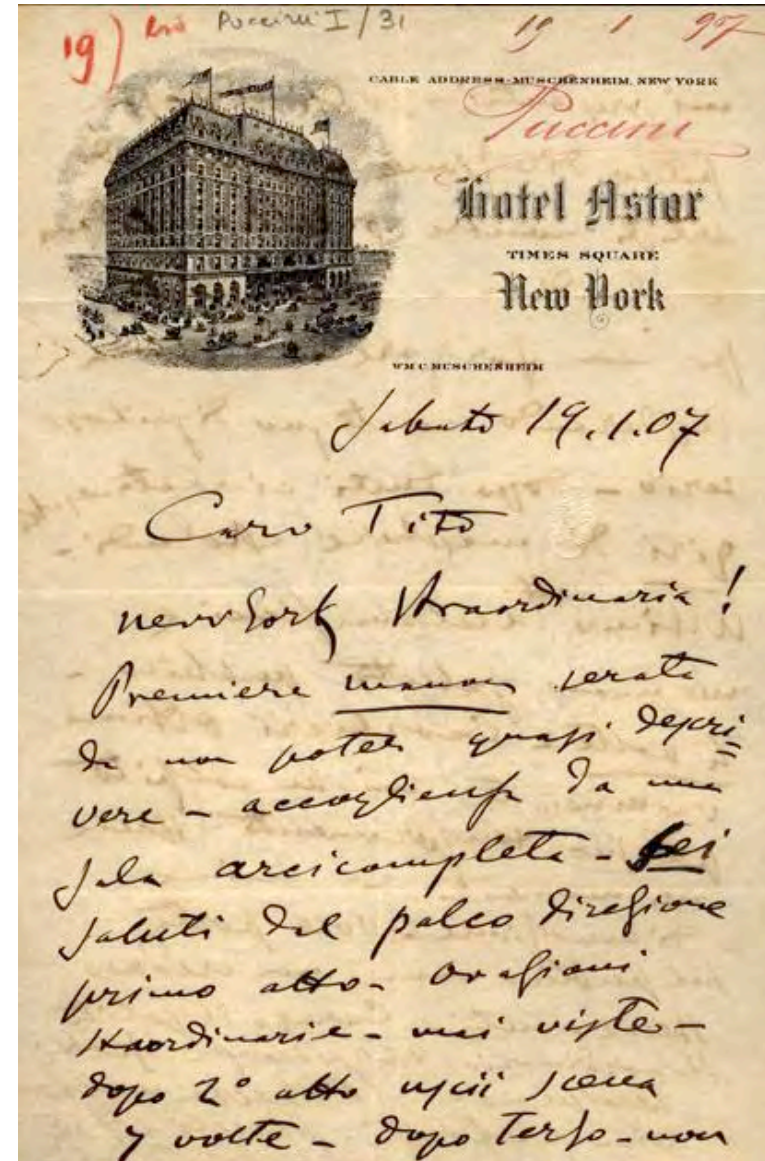 19) Puccini I/31 19 1 907
CABLE ADDRESS-MUSCHENHEIM, NEW YORK
Puccini
Hotel Astor
TIMES SQUARE
New York
WM C. MUSCHENHEIM
Sabato 19.1.07
Caro Tito
New York straordinaria!
Premiere manon serata
da non poter quasi descri=
vere - accoglienza da una
sala arcicompleta - sei
saluti dal palco direzione
primo atto - ovazioni
straordinarie - mai viste -
dopo 2° atto uscii scena
7 volte - dopo terzo - non